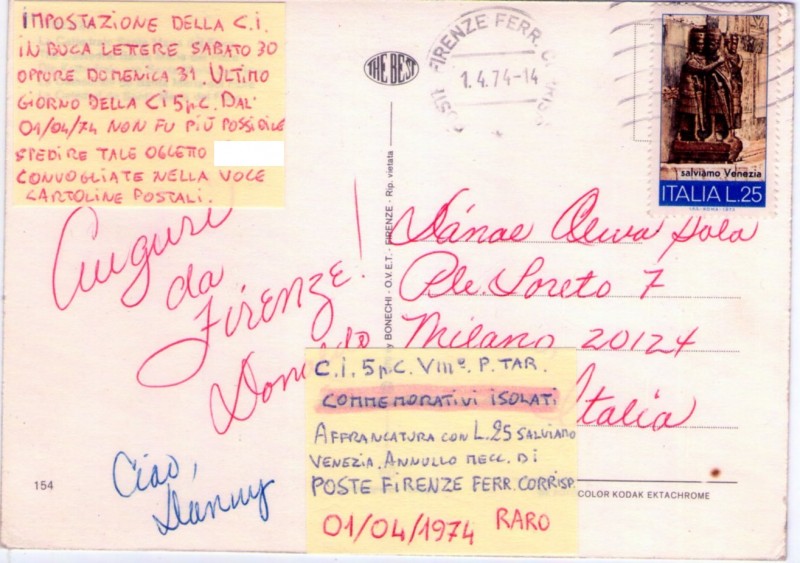 IMPOSTAZIONE DELLA C.I.
IN BUCA LETTERE SABATO 30
OPPURE DOMENICA 31. ULTIMO
GIORNO DELLA CI 5 p.C. DAL
01/04/74 NON FU PIÙ POSSIBILE
SPEDIRE TALE OGGETTO
CONVOGLIATE NELLA VOCE
CARTOLINE POSTALI.
THE BEST
FIRENZE FERR. C
1.4.74-14
salviamo Venezia
ITALIA L.25
Auguri
da
Firenze!
Ciao,
Danny
154
by BONECHI - O.V.E.T. - FIRENZE - Rip. vietata
Danae
P.le Loreto 7
Milano 20124
Italia
C.I. 5 p.C. VIIIº. P. TAR.
COMMEMORATIVI ISOLATI
AFFRANCATURA CON L.25 SALVIAMO
VENEZIA. ANNULLO MECC. DI
POSTE FIRENZE FERR. CORRISP.
01/04/1974 RARO
COLOR KODAK EKTACHROME